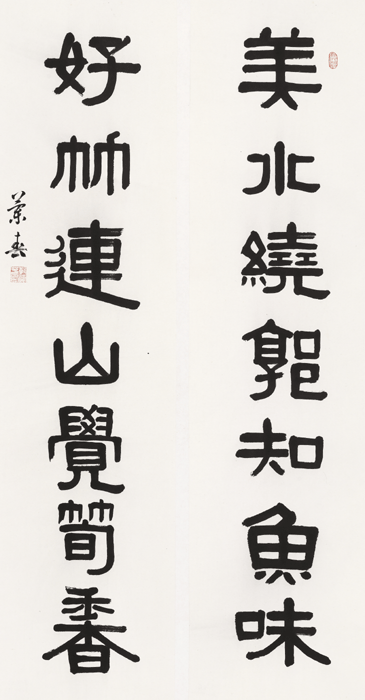 美水繞郭知魚味
好竹連山覺筍香